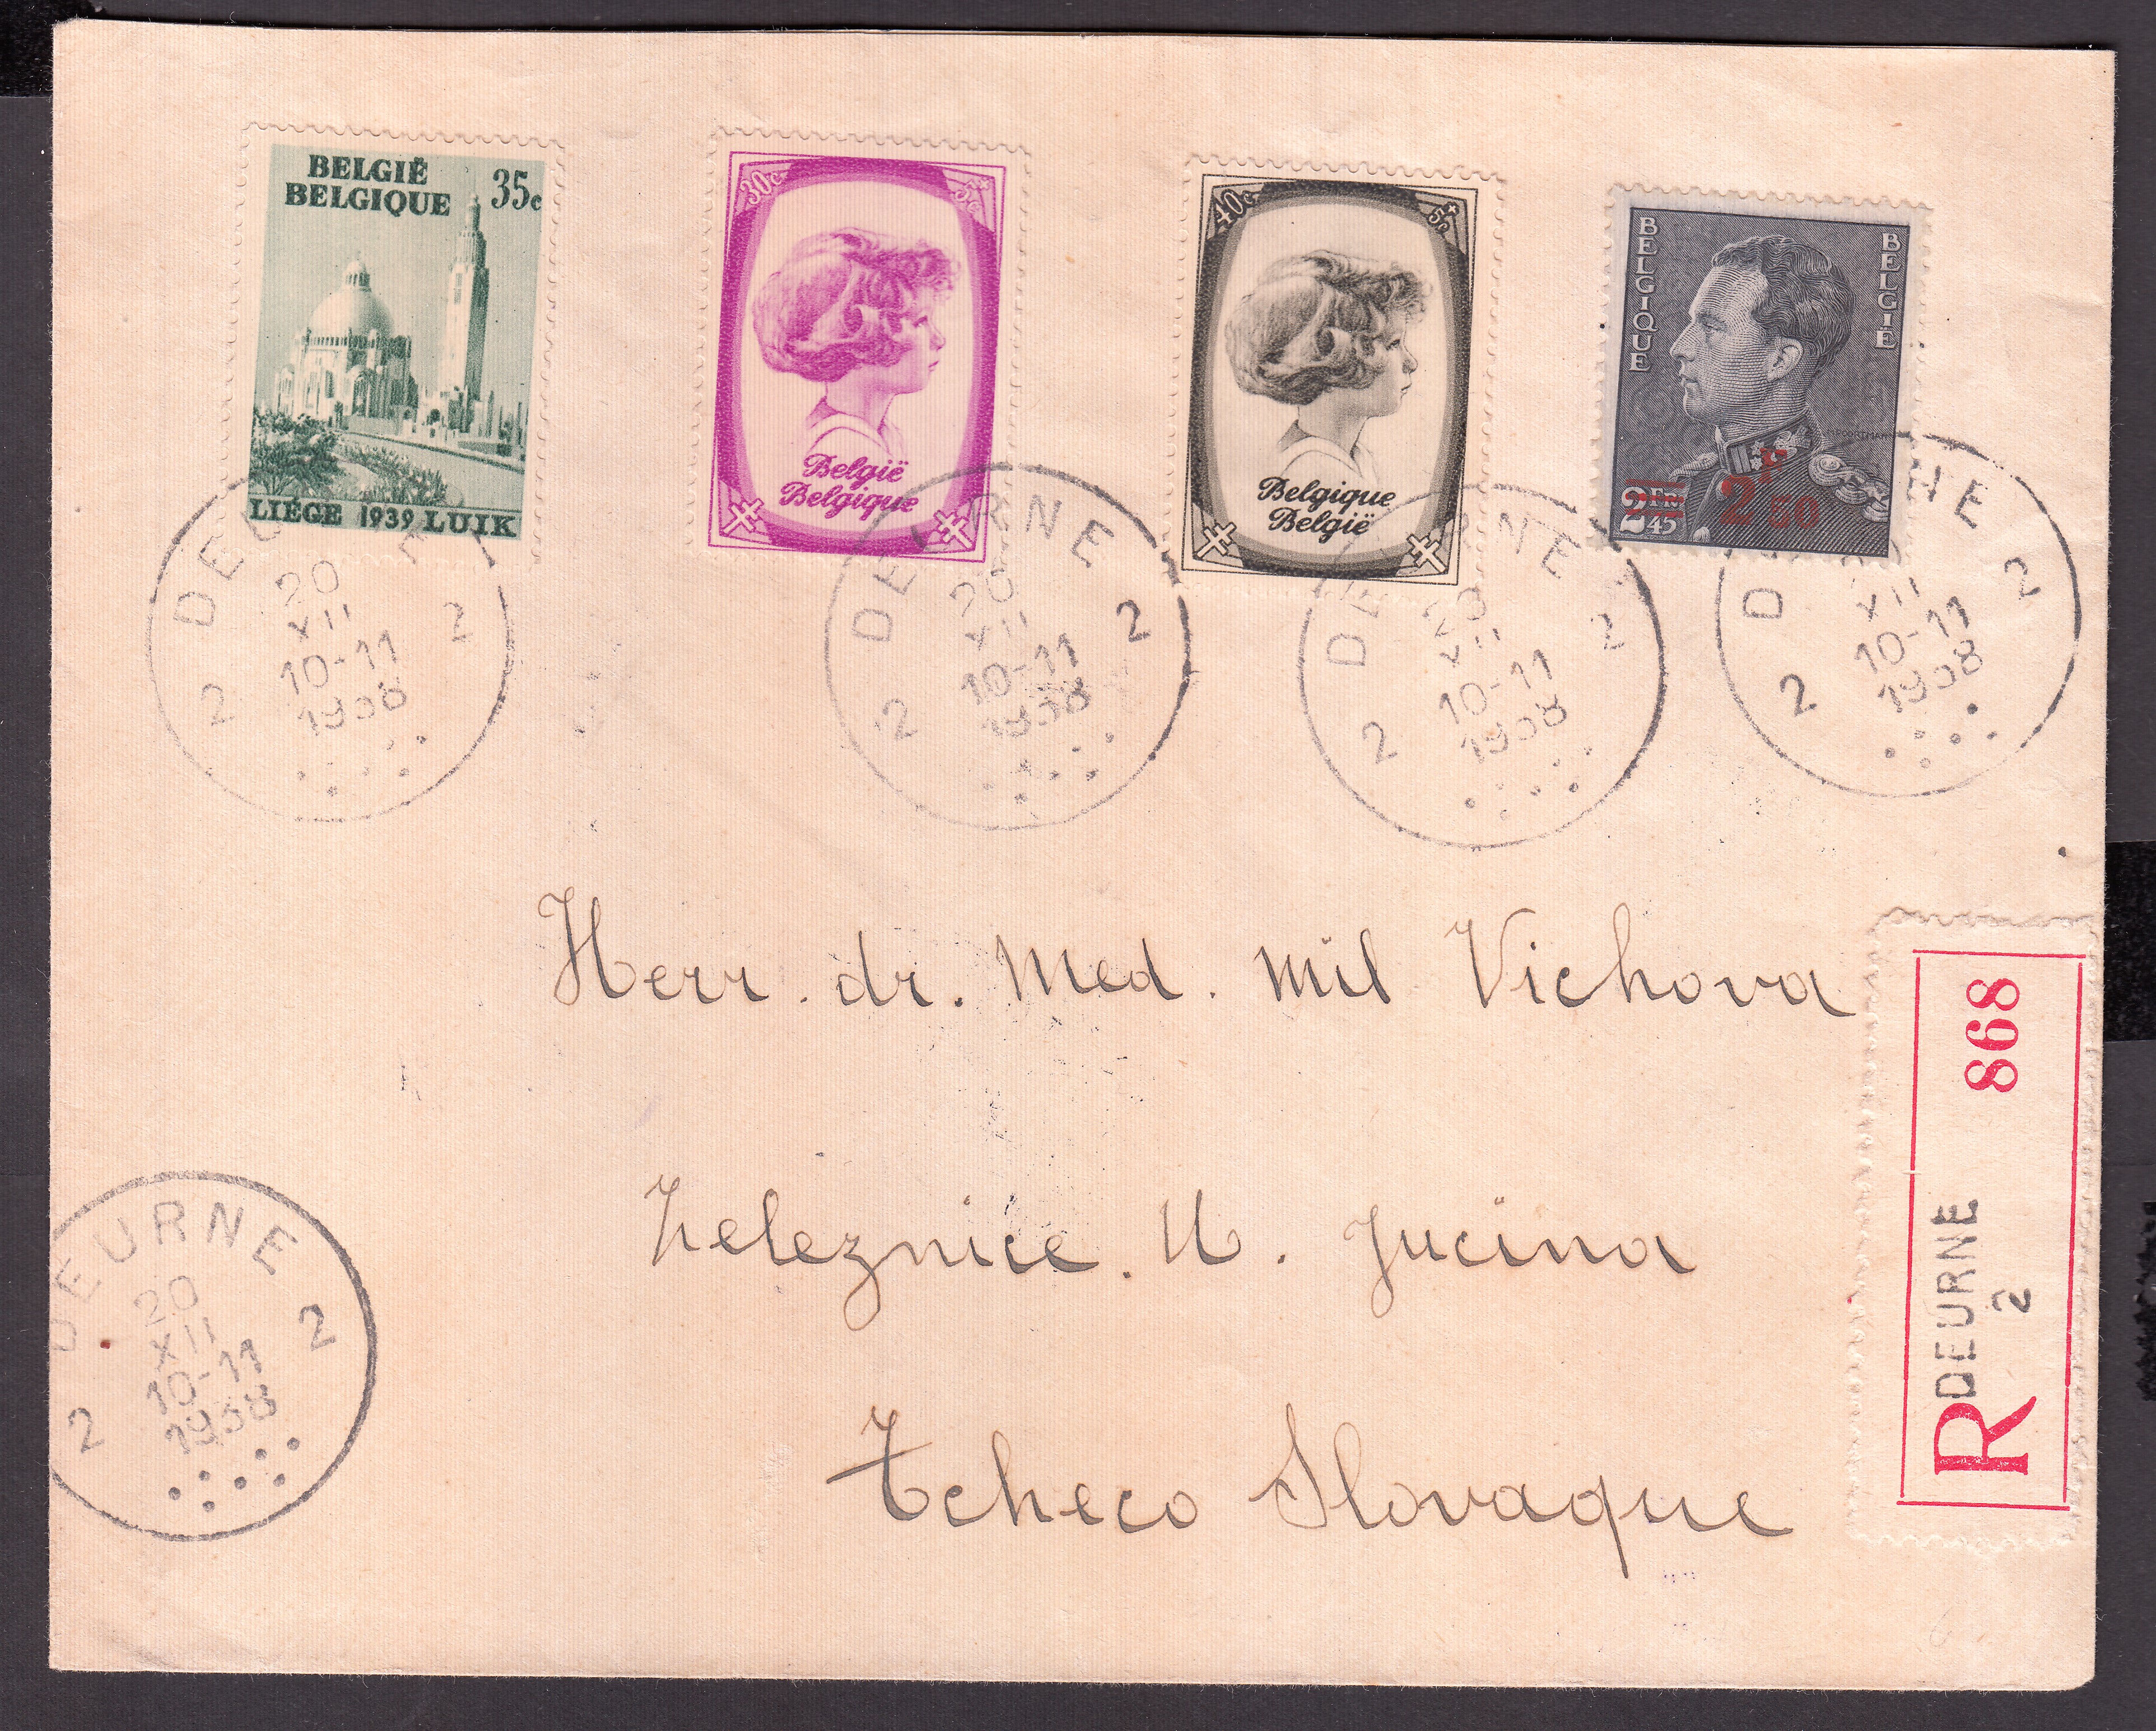 BELGIË
BELGIQUE
35c
LIÉGE 1939 LUIK
30c
+5c
België
Belgique
40c
+5c
Belgique
België
BELGIQUE
BELGIË
2FR45
2F50
DEURNE
20
XII
10-11
1938
2 2
DEURNE
20
XII
10-11
1938
2 2
DEURNE
20
XII
10-11
1938
2 2
DEURNE
XII
10-11
1938
2 2
Herr. dr. Med. mil Vichova
Zeleznice. U. Jucina
Tcheco Slovaque
DEURNE
20
XII
10-11
1938
2 2
R DEURNE 2 868